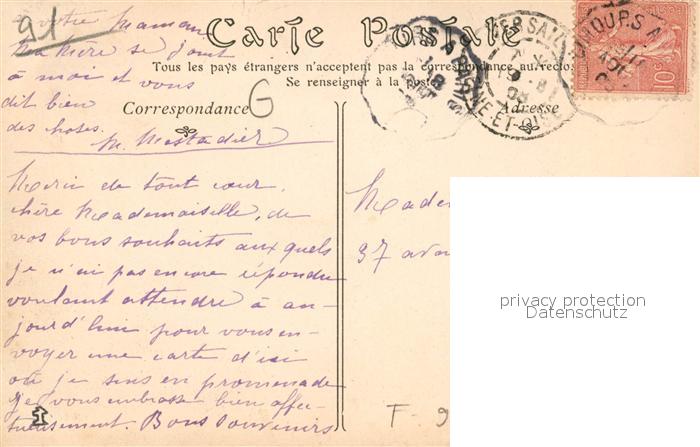 91
à votre Maman
Ma Mère se joint
à moi et vous
dit bien
des choses.
M. Mestadier
Carte Postale
Tous les pays étrangers n'acceptent pas la correspondance au recto
Se renseigner à la poste
Correspondance
G
Adresse
ET-OISE
10
Merci de tout cœur,
chère Mademoiselle, de
vos bons souhaits auxquels
je n'ai pas encore répondu
voulant attendre à au-
jourd'hui pour vous en-
voyer une carte d'ici
où je suis en promenade
Je vous embrasse bien affec-
tueusement. Bons souvenirs
37
F-9
privacy protection
Datenschutz